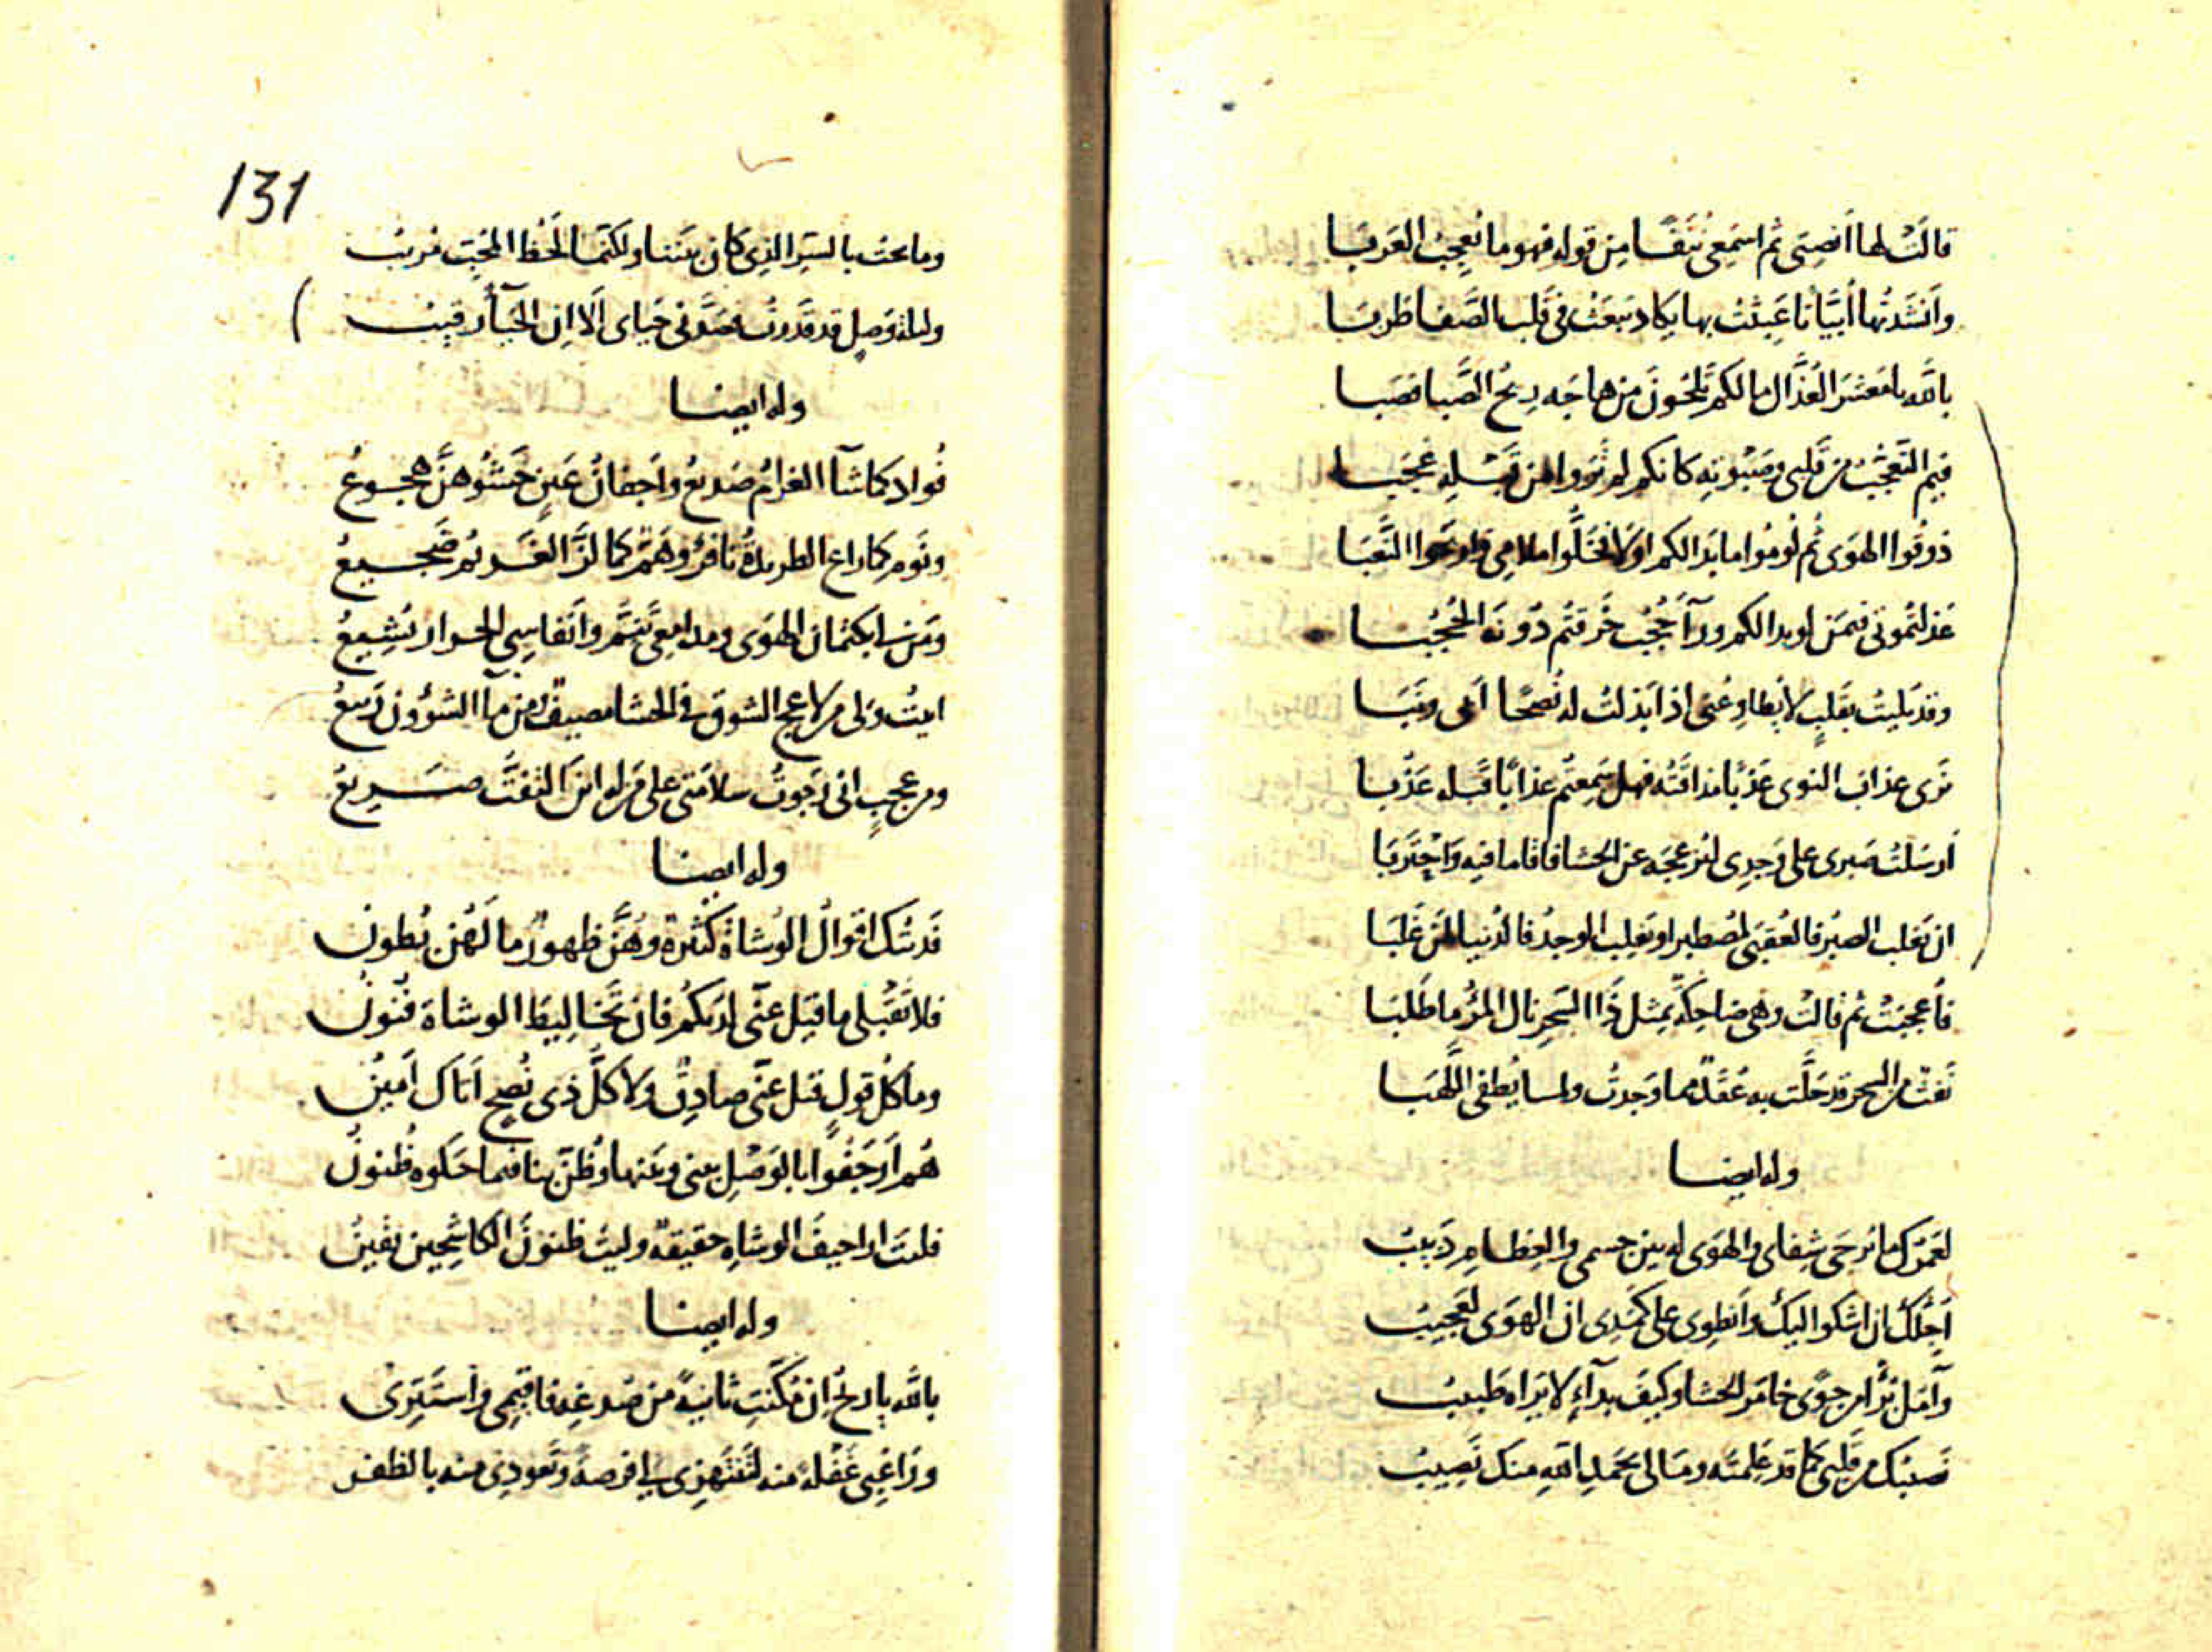 قالَتْ لها اَنصِتى ثم اسمَعِى نُتَفًا مِن قولهِ فهو ما يُعجِبُ العَرَبَا
وأنشَدتُها أبيَاتًا عَبِثْتُ بها يكاد يَبعَثُ فى قلب الصَّفا طَرَبَا
بالله يا مَعشَر العُذَّالِ ما لكم تَلحُونَ من هاجَه ريحُ الصَّبا فصَبا
فيم التعَجُّب من قلبى وصَبْوته كانكم لم تروا من قبلهِ عَجَبا
ذوقُوا الهوَى ثم لُومُوا ما بَدا لكم اوَلا فخَلُّوا ملامى واربحوا التَّعَبَا
عَذَلتُمونى فمَن اوبدا لكم ورآءَ حُجْبٍ خرقتم دُونَه الحُجُبا
وقد بُليتُ بقَلبٍ لا يُطاوِعُنى اذا بَذلتُ له نُصحًا اَبى ونَبَا
يَرى عذابَ النوى عَذبًا مذاقَتُه فهل سَمِعتُم عذابًا قبله عَذُبا
أرسَلتُ صَبرى على وَجدِى ليُزعِجَه عن الحشا فاقاما فيه وَاحْتَرَبَا
ان يَغلب الصَبرُ فالعُقبَى لمُصطبرٍ او يَغلِب الوجدُ فالدُنيا لمَن غَلَبَا
فأُعجِبَتْ ثم قالت وهى ضاحِكةٌ بمِثل ذَا السّحرِ نال المرُْ ما طَلبَا
نَفثٌ من السحر قد حَلَّت به عُقَدٌ مما وَجدتُ ولما يُطفِى اللَّهَبَا
وله ايضا
لعَمرُك ما يُرجَى شِفاى والهَوى له بين جسمى والعِظامِ دَبيبُ
أُجِلُّكَ ان اشكو اليكَ وأنطَوِى على كمَدِى ان الهوَى لعَجِيبُ
وآمَل بُرْاً من جوًى خامَر الحشا وكيفَ بدآءٍ لا يَراه طَبيبُ
نَصيبُك من قلبى كما قد عَلِمتَه وما لى بحَمدِ اللهِ منكَ نَصِيبُ
131
وما بحتُ بالسِرّ الذى كان بَيننا ولكنّما لَحْظ المُحِبّ مُريبُ
وليلة وَصلٍ قد قَدرتُ فصَدَّنى حَياى اَلا اِنّ الحَيآءَ رقيبُ
وله ايضا
فُواد كما شآء الغرامُ صَديعُ وأجفانُ عَينٍ حَشْوُهنَّ هجوعُ
ونَوم كما راع الطريدةَ نافرٌ وهَمّ كما لزَّ الغَريمَ ضَجيعُ
ومَن لى بكتمان الهوَى ومدامِعى تَنِمّ وأنفاسِى الحرار تُشِيعُ
ابيتُ ولى من لاعج الشوق فى الحشا مصيفٌ ومن مآء الشؤُون رَبيعُ
ومن عجبٍ انى رَجوتُ سلامَتى على من لو انّ التفَتُّ صَريعُ
وله ايضا
قَد شُكَّ اقوالُ الوُشاةِ كثيرةٌ وهُنَّ ظهورٌ ما لَهُنّ بُطونُ
فلا تَقْبَلى ما قيلَ عنّى لديكُمُ فان تَخاليطَ الوشاةِ فُنونُ
وما كُلّ قولٍ قيل عَنّى صادِقٌ ولا كلُّ ذى نُصحٍ اَتاك اَمينُ
هُم أرجَفُوا بالوَصْلِ بينى وبَينها وظُنّ بنا فيما حَكوه ظُنونُ
فليتَ اراجيفَ الوشاةِ حقيقةٌ وليتَ ظنونَ الكاشِحِين يَقينُ
وله ايضا
بالله يا ريحُ اِن مُكِّنتِ ثانيةً من صُدغِه فاقيمِى واَستَتِرِى
ورَاغِبى غَفْلةً منه لتَنتَهِزى لى فرصةً وتَعودِى منه بالظفر